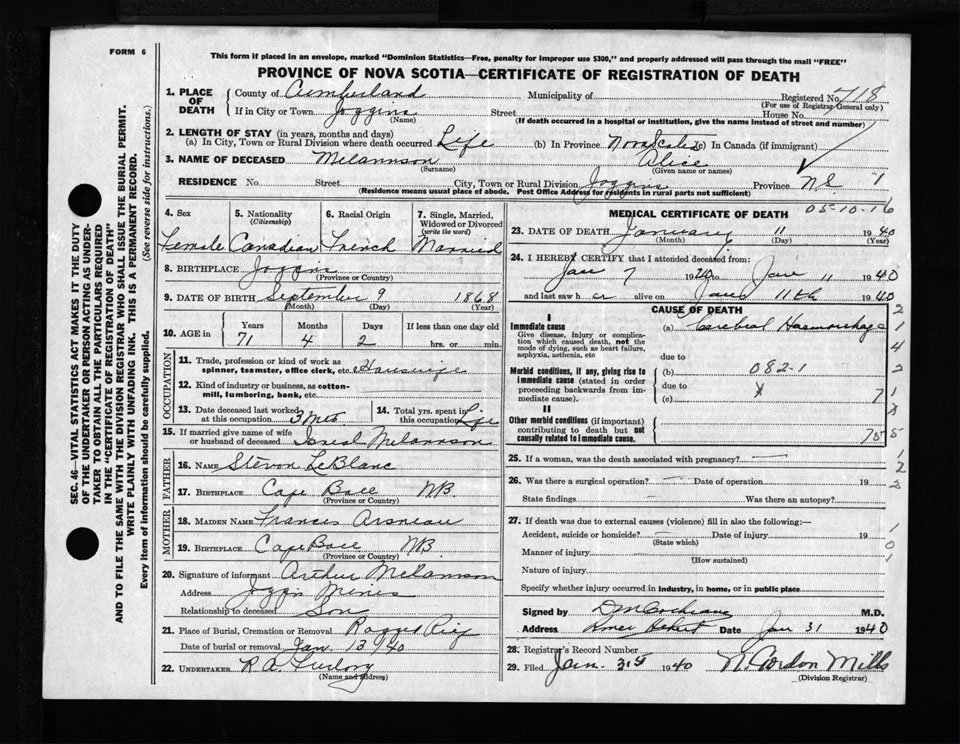 FORM 6
This form if placed in an envelope, marked "Dominion Statistics—Free, penalty for improper use $300," and properly addressed will pass through the mail "FREE"
PROVINCE OF NOVA SCOTIA—CERTIFICATE OF REGISTRATION OF DEATH
SEC. 46—VITAL STATISTICS ACT MAKES IT THE DUTY
OF THE UNDERTAKER OR PERSON ACTING AS UNDER-
TAKER TO OBTAIN ALL THE PARTICULARS REQUIRED
IN THE "CERTIFICATE OF REGISTRATION OF DEATH"
AND TO FILE THE SAME WITH THE DIVISION REGISTRAR WHO SHALL ISSUE THE BURIAL PERMIT.
WRITE PLAINLY WITH UNFADING INK. THIS IS A PERMANENT RECORD.
Every item of information should be carefully supplied. (See reverse side for instructions.)
1. PLACE OF DEATH County of Cumberland Municipality of Registered No. 718
(For use of Registrar General only)
If in City or Town Joggins Street House No.
(Name) (If death occurred in a hospital or institution, give the name instead of street and number)
2. LENGTH OF STAY (in years, months and days)
(a) In City, Town or Rural Division where death occurred Life (b) In Province Nova Scotia (c) In Canada (if immigrant)
3. NAME OF DECEASED Melannson Alice
(Surname) (Given name or names)
RESIDENCE No. Street City, Town or Rural Division Joggins Province NS 1
(Residence means usual place of abode. Post Office Address for residents in rural parts not sufficient)
4. Sex 5. Nationality (Citizenship) 6. Racial Origin 7. Single, Married, Widowed or Divorced (write the word)
Female Canadian French Married
8. BIRTHPLACE Joggins
(Province or Country)
9. DATE OF BIRTH September 9 1868
(Month) (Day) (Year)
10. AGE in Years Months Days If less than one day old
71 4 2 hrs. or min.
OCCUPATION
11. Trade, profession or kind of work as
spinner, teamster, office clerk, etc. Housewife
12. Kind of industry or business, as cotton-
mill, lumbering, bank, etc.
13. Date deceased last worked at this occupation 3 Mts 14. Total yrs. spent in this occupation Life
15. If married give name of wife
or husband of deceased Melannson
FATHER
16. Name Steven LeBlanc
17. Birthplace Cape Bale NB
(Province or Country)
MOTHER
18. Maiden Name Francis Arsneau
19. Birthplace Cape Bale NB.
(Province or Country)
20. Signature of informant Arthur Melannson
Address Joggin Mines
Relationship to deceased Son
21. Place of Burial, Cremation or Removal
Date of burial or removal Jan. 13/40
22. Undertaker R A
(Name and address)
MEDICAL CERTIFICATE OF DEATH
05-10-16
23. DATE OF DEATH January 11 1940
(Month) (Day) (Year)
24. I HEREBY CERTIFY that I attended deceased from:
Jan 7 1940 to Jan 11 1940
and last saw her alive on Jan 11th 1940
CAUSE OF DEATH
I
Immediate cause (a) Cerebral Haemorrhage
Give disease, injury or complica-
tion which caused death, not the
mode of dying, such as heart failure,
asphyxia, asthenia, etc due to
Morbid conditions, if any, giving rise to (b) 082-1
immediate cause (stated in order due to
proceeding backwards from im-
mediate cause). (c)
II
Other morbid conditions (if important)
contributing to death but not
causally related to immediate cause.
25. If a woman, was the death associated with pregnancy?
26. Was there a surgical operation? Date of operation 19
State findings Was there an autopsy?
27. If death was due to external causes (violence) fill in also the following:—
Accident, suicide or homicide? Date of injury 19
(State which)
Manner of injury
(How sustained)
Nature of injury
Specify whether injury occurred in industry, in home, or in public place
Signed by D M Cochrane M.D.
Address Date Jan 31 1940
28. Registrar's Record Number
29. Filed Jan. 31st 1940 N. Gordon Mills
(Division Registrar)